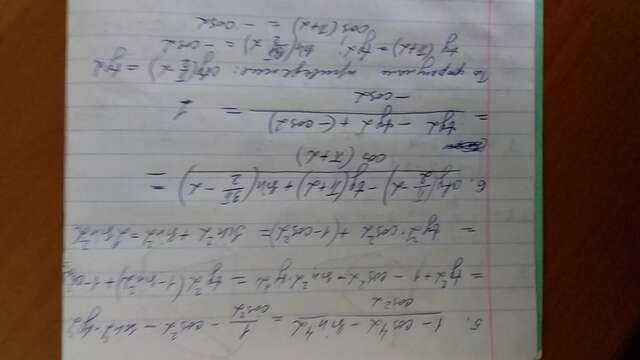 5. (1 - cos⁴α - sin⁴α)/cos²α = 1/cos²α - cos²α - sin²α·tg²α
= tg²α + 1 - cos²α - sin²α·tg²α = tg²α(1 - sin²α) + 1 - cos²α
= tg²α·cos²α + (1 - cos²α) = sin²α + sin²α = 2 sin²α
6. (ctg(π/2 - α) - tg(π + α) + sin(3π/2 - α))/cos(π + α) =
= (tgα - tgα + (-cosα))/-cosα = 1
По формулам приведения: ctg(π/2 - α) = tgα
tg(π + α) = tgα; sin(3π/2 - α) = -cosα
cos(π + α) = -cosα